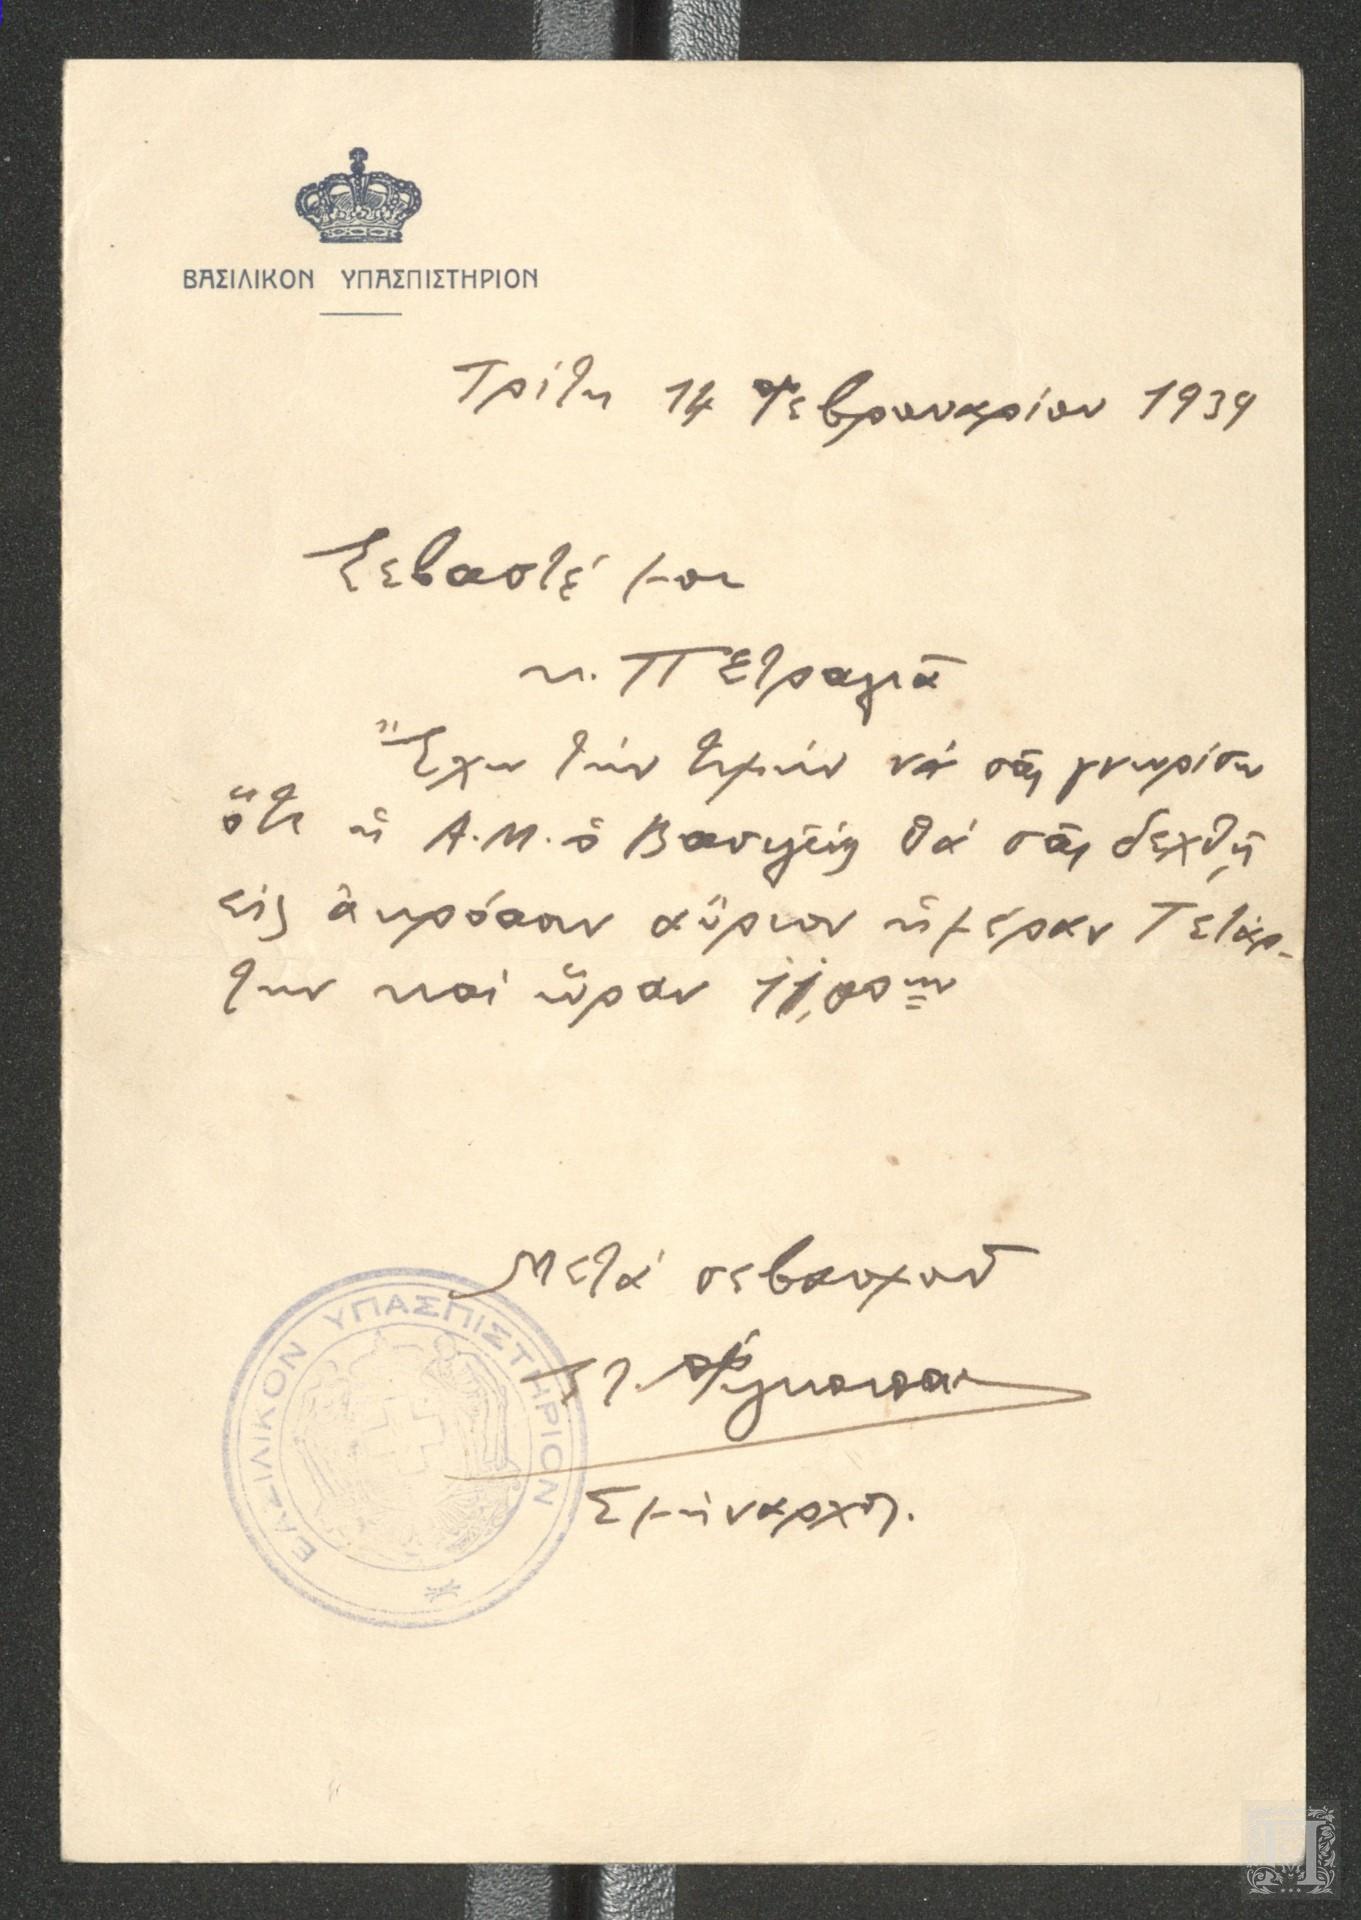 ΒΑΣΙΛΙΚΟΝ ΥΠΑΣΠΙΣΤΗΡΙΟΝ
Τρίτη 14 Φεβρουαρίου 1939
Σεβαστέ μου
κ. Πετραλιᾶ
Ἔχω τήν τιμήν νά σᾶς γνωρίσω
ὅτι ἡ Α.Μ. ὁ Βασιλεύς θά σᾶς δεχθῇ
εἰς ἀκρόασιν αὔριον ἡμέραν Τετάρ-
την καί ὥραν 11,00ην
Μετά σεβασμοῦ
Σμήναρχος.
ΒΑΣΙΛΙΚΟΝ ΥΠΑΣΠΙΣΤΗΡΙΟΝ